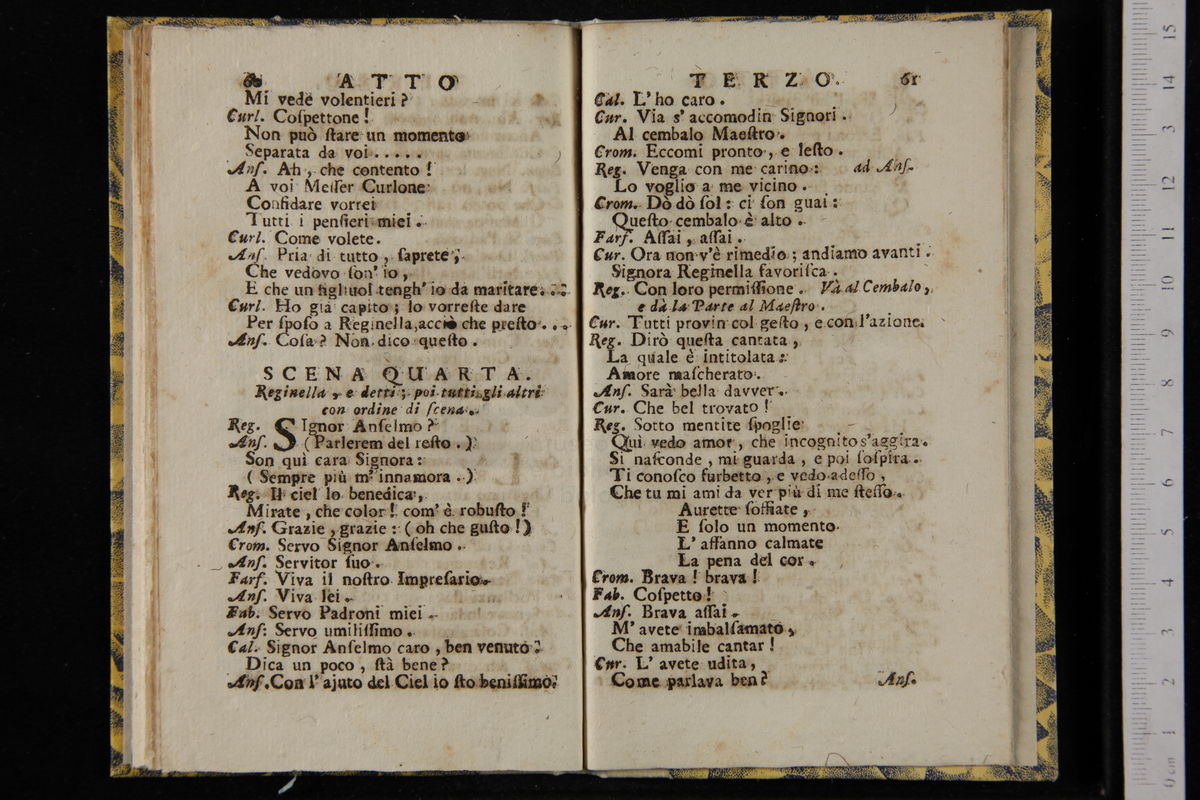 60 ATTO
Mi vede volentieri?
Curl. Coſpettone!
Non può ſtare un momento
Separata da voi.....
Anſ. Ah, che contento!
A voi Meſſer Curlone
Confidare vorrei
Tutti i penſieri miei.
Curl. Come volete.
Anſ. Pria di tutto, ſaprete,
Che vedovo ſon' io,
E che un figliuol tengh' io da maritare...
Curl. Ho già capito; lo vorreſte dare
Per ſpoſo a Reginella, acciò che preſto...
Anſ. Coſa? Non dico queſto.
SCENA QUARTA.
Reginella, e detti; poi tutti gli altri
con ordine di ſcena.
Reg. SIgnor Anſelmo?
Anſ. (Parlerem del reſto.)
Son quì cara Signora:
(Sempre più m' innamora.)
Reg. Il ciel lo benedica,
Mirate, che color! com' è robuſto!
Anſ. Grazie, grazie: (oh che guſto!)
Crom. Servo Signor Anſelmo.
Anſ. Servitor ſuo.
Farſ. Viva il noſtro Impreſario.
Anſ. Viva lei.
Fab. Servo Padroni miei.
Anſ: Servo umiliſſimo.
Cal. Signor Anſelmo caro, ben venuto:
Dica un poco, ſtà bene?
Anſ. Con l' ajuto del Ciel io ſto beniſſimo.
TERZO. 61
Cal. L' ho caro.
Cur. Via s' accomodin Signori.
Al cembalo Maeſtro.
Crom. Eccomi pronto, e leſto.
Reg. Venga con me carino: ad Anſ.
Lo voglio a me vicino.
Crom. Dò dò ſol: ci ſon guai:
Queſto cembalo è alto.
Farſ. Aſſai, aſſai.
Cur. Ora non v'è rimedio; andiamo avanti.
Signora Reginella favoriſca.
Reg. Con loro permiſſione. Và al Cembalo,
e dà la Parte al Maeſtro.
Cur. Tutti provin col geſto, e con l'azione.
Reg. Dirò queſta cantata,
La quale è intitolata:
Amore maſcherato.
Anſ. Sarà bella davver.
Cur. Che bel trovato!
Reg. Sotto mentite ſpoglie
Quì vedo amor, che incognito s'aggira.
Si naſconde, mi guarda, e poi ſoſpira.
Ti conoſco furbetto, e vedo adeſſo,
Che tu mi ami da ver più di me ſteſſo.
Aurette ſoffiate,
E ſolo un momento
L' affanno calmate
La pena del cor.
Crom. Brava! brava!
Fab. Coſpetto!
Anſ. Brava aſſai.
M' avete imbalſamato,
Che amabile cantar!
Cur. L' avete udita,
Come parlava ben? Anſ.
0 cm 1 2 3 4 5 6 7 8 9 10 11 12 13 14 15